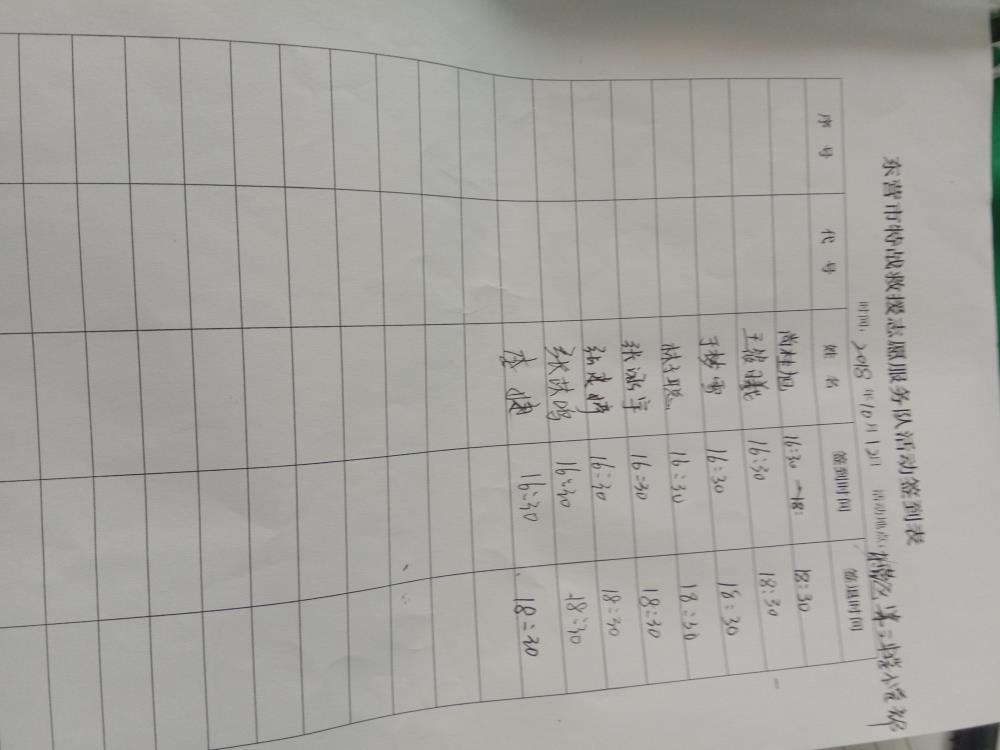 东营市特战救援志愿服务队活动签到表
时间：2018年10月12日 活动地点：
序号 代号 姓名 签到时间 签退时间
尚桂旭 16:30 →18: 18:30
王 16:30 18:30
于梦雪 16:30 18:30
林聪 16:30 18:30
张泳宇 16:30 18:30
16:30 18:30
张 16:30 18:30
李倩 16:30 18:30